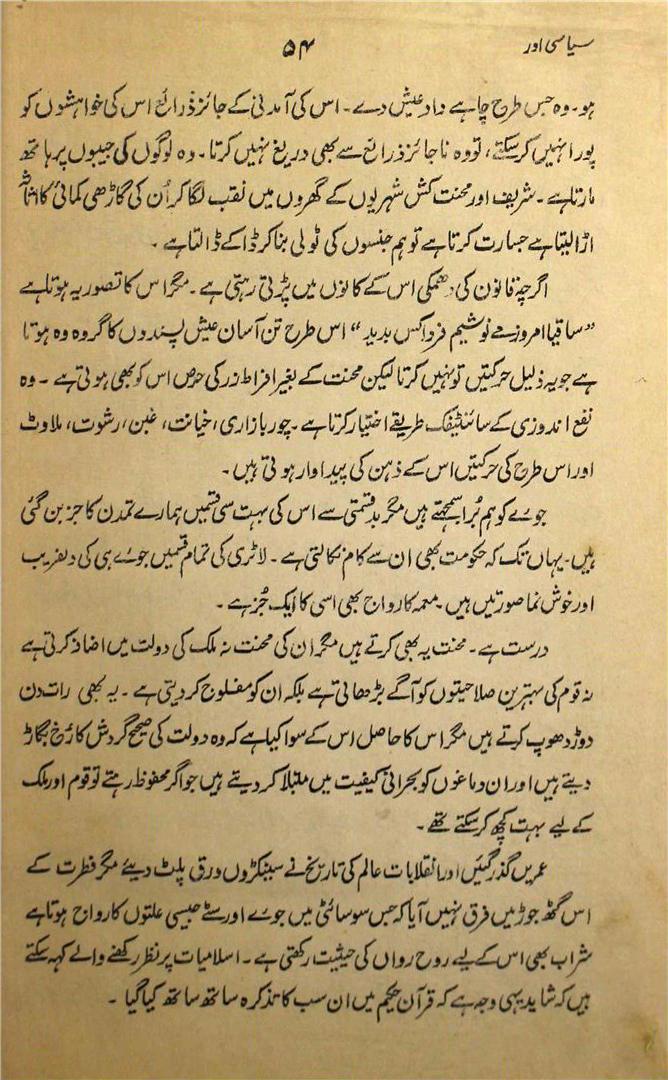 سیاسی اور
۵۴
ہو۔ وہ جس طرح چاہے داد عیش دے۔ اس کی آمدنی کے جائز ذرائع اس کی خواہشوں کو
پورا نہیں کر سکتے، تو وہ ناجائز ذرائع سے بھی دریغ نہیں کرتا۔ وہ لوگوں کی جیبوں پر ہاتھ
مارتا ہے۔ شریف اور محنت کش شہریوں کے گھروں میں نقب لگا کر اُن کی گاڑھی کمائی کا اثاثہ
اڑا لیتا ہے جسارت کرتا ہے تو ہم جنسوں کی ٹولی بنا کر ڈاکے ڈالتا ہے۔
اگرچہ قانون کی دھمکی اس کے کانوں میں پڑتی رہتی ہے۔ مگر اس کا تصور یہ ہوتا ہے
”ساقیا امروز مے نوشیم فردا کس ندید“ اس طرح تن آسان عیش پسندوں کا گروہ وہ ہوتا
ہے جو یہ ذلیل حرکتیں تو نہیں کرتا لیکن محنت کے بغیر افراط زر کی حرص اس کو بھی ہوتی ہے۔ وہ
نفع اندوزی کے سائنٹیفک طریقے اختیار کرتا ہے۔ چور بازاری، خیانت، غبن، رشوت، ملاوٹ
اور اس طرح کی حرکتیں اس کے ذہن کی پیداوار ہوتی ہیں۔
جوئے کو ہم بُرا سمجھتے ہیں مگر بدقسمتی سے اس کی بہت سی قسمیں ہمارے تمدن کا جز بن گئی
ہیں۔ یہاں تک کہ حکومت بھی ان سے کام نکالتی ہے۔ لاٹری کی تمام قسمیں جوئے ہی کی دلفریب
اور خوش نما صورتیں ہیں۔ معمہ کا رواج بھی اسی کا ایک جُز ہے۔
درست ہے۔ محنت یہ بھی کرتے ہیں مگر ان کی محنت نہ ملک کی دولت میں اضافہ کرتی ہے
نہ قوم کی بہترین صلاحیتوں کو آگے بڑھاتی ہے بلکہ ان کو مفلوج کر دیتی ہے۔ یہ بھی رات دن
دوڑ دھوپ کرتے ہیں مگر اس کا حاصل اس کے سوا کیا ہے کہ وہ دولت کی صحیح گردش کا رُخ بگاڑ
دیتے ہیں اور ان دماغوں کو بحرانی کیفیت میں مبتلا کر دیتے ہیں جو اگر محفوظ رہتے تو قوم اور ملک
کے لیے بہت کچھ کر سکتے تھے۔
عمریں گذر گئیں اور انقلابات عالم کی تاریخ نے سینکڑوں ورق پلٹ دیئے مگر فطرت کے
اس گٹھ جوڑ میں فرق نہیں آیا کہ جس سوسائٹی میں جوئے اور سٹے جیسی علتوں کا رواج ہوتا ہے
شراب بھی اس کے لیے روح رواں کی حیثیت رکھتی ہے۔ اسلامیات پر نظر رکھنے والے کہہ سکتے
ہیں کہ شاید یہی وجہ ہے کہ قرآن حکیم میں ان سب کا تذکرہ ساتھ ساتھ کیا گیا۔